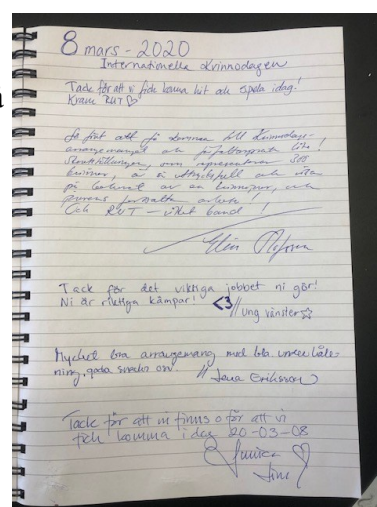 8 mars - 2020
Internationella Kvinnodagen
Tack för att vi fick komma hit och spela idag!
Kram RUT ♡
Så fint att få komma till Kvinnodags-
arrangemanget och få prata lite!
som representerar 308
kvinnor, är så uttrycksfull och
på av en kvinnojour, och
jourens fortsatta arbete!
Och RUT – vilket band!
Elin
Tack för det viktiga jobbet ni gör!
Ni är riktiga kämpar! <3 // Ung vänster ☆
Mycket bra arrangemang med bla underhåll-
ning, goda snacks osv. // Lena Eriksson
Tack för att ni finns o för att vi
fick komma idag 20-03-08